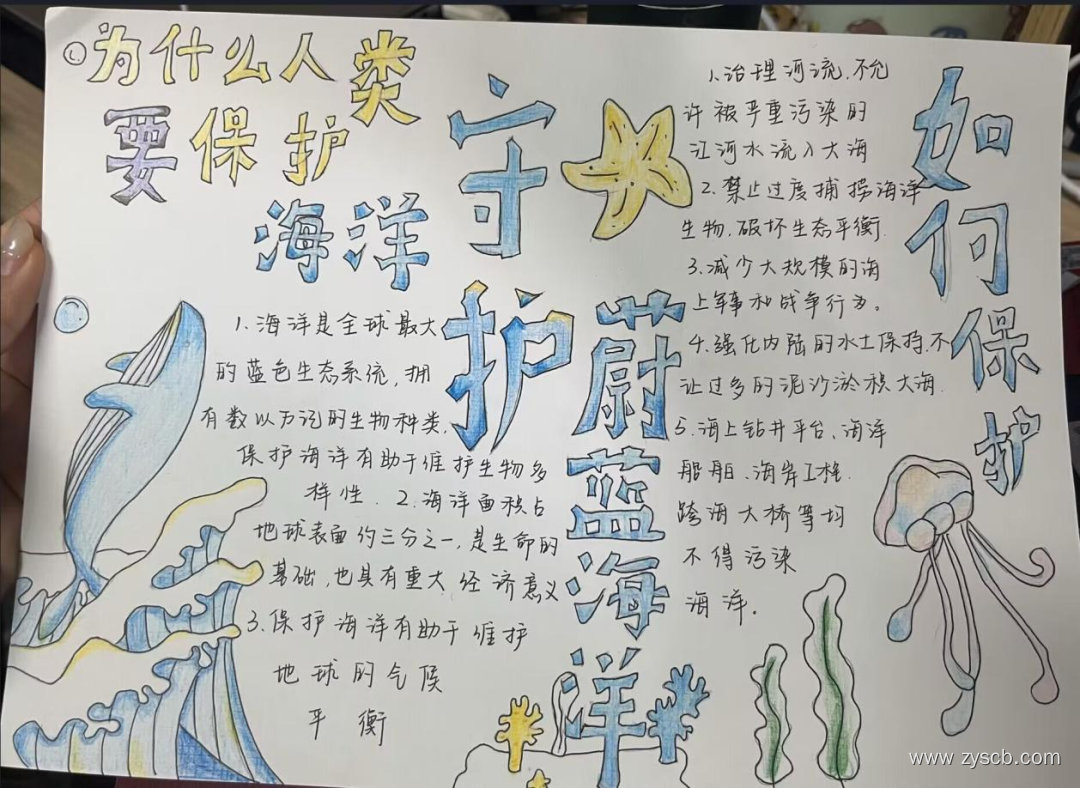 为什么人类
要保护
海洋
1.海洋是全球最大
的蓝色生态系统,拥
有数以万记的生物种类,
保护海洋有助于维护生物多
样性.2.海洋面积占
地球表面约三分之一,是生命的
基础,也具有重大经济意义
3.保护海洋有助于维护
地球的气候
平衡
守护蔚蓝海洋
如何保护
1.治理河流.不允
许被严重污染的
江河水流入大海
2.禁止过度捕捞海洋
生物,破坏生态平衡.
3.减少大规模的海
上军事和战争行为。
4.强化内陆的水土保持.不
让过多的泥沙淤积大海.
5.海上钻井平台、海洋
船舶、海岸工程.
跨海大桥等均
不得污染
海洋。
www.zyscb.com